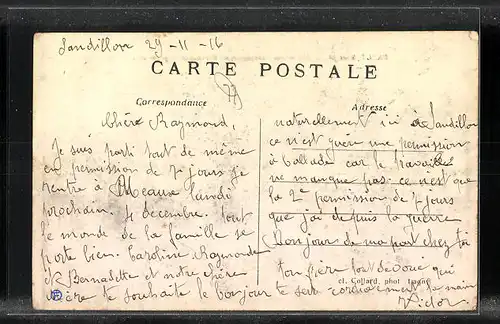 Sandillon 29-11-16
CARTE POSTALE
Correspondance
Adresse
Chère Raymond,
Je suis parti tout de même
en permission de 7 jours je
rentre à Meaux lundi
prochain. 4 decembre. Tout
le monde de la famille se
porte bien. Caroline Raymonde
et Bernadette et notre chère
mère te souhaite le bonjour
naturellement ici à Sandillon
ce n'est guère une permission
à ballade car le travaille
ne manque pas. ce n'est que
la 2e permission de 7 jours
que j'ai depuis la guerre
Bonjour de ma part chez toi
Ton père tout dévoué qui
cl. Collard, phot
te serre cordialement la main
Victor.